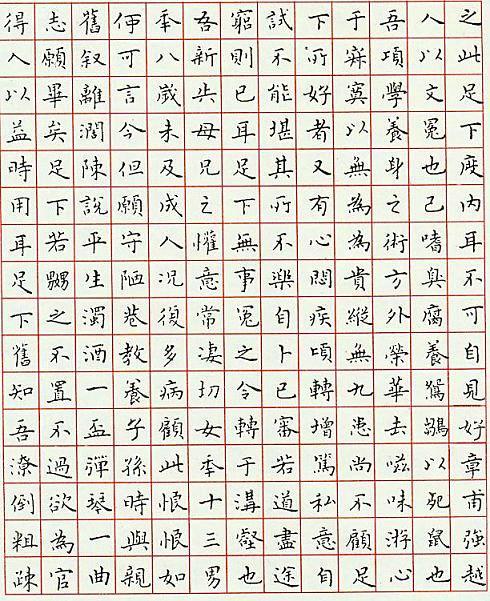 之此足下度內耳不可自見好章甫強越
人以文冕也己嗜臭腐養鴛鶵以死鼠也
吾項學養身之術方外榮華去滋味游心
于寂寞以無為為貴縱無九患尚不顧足
下所好者又有心悶疾頃轉增篤私意自
試不能堪其所不樂自卜已審若道盡途
窮則已耳足下無事冤之令轉于溝壑也
吾新失母兄之懽意常凄切女年十三男
年八歲未及成人況復多病顧此恨恨如
何可言今但願守陋巷教養子孫時與親
舊叙離濶陳說平生濁酒一盃彈琴一曲
志願畢矣足下若嬲之不置不過欲為官
得人以益時用耳足下舊知吾潦倒粗疎